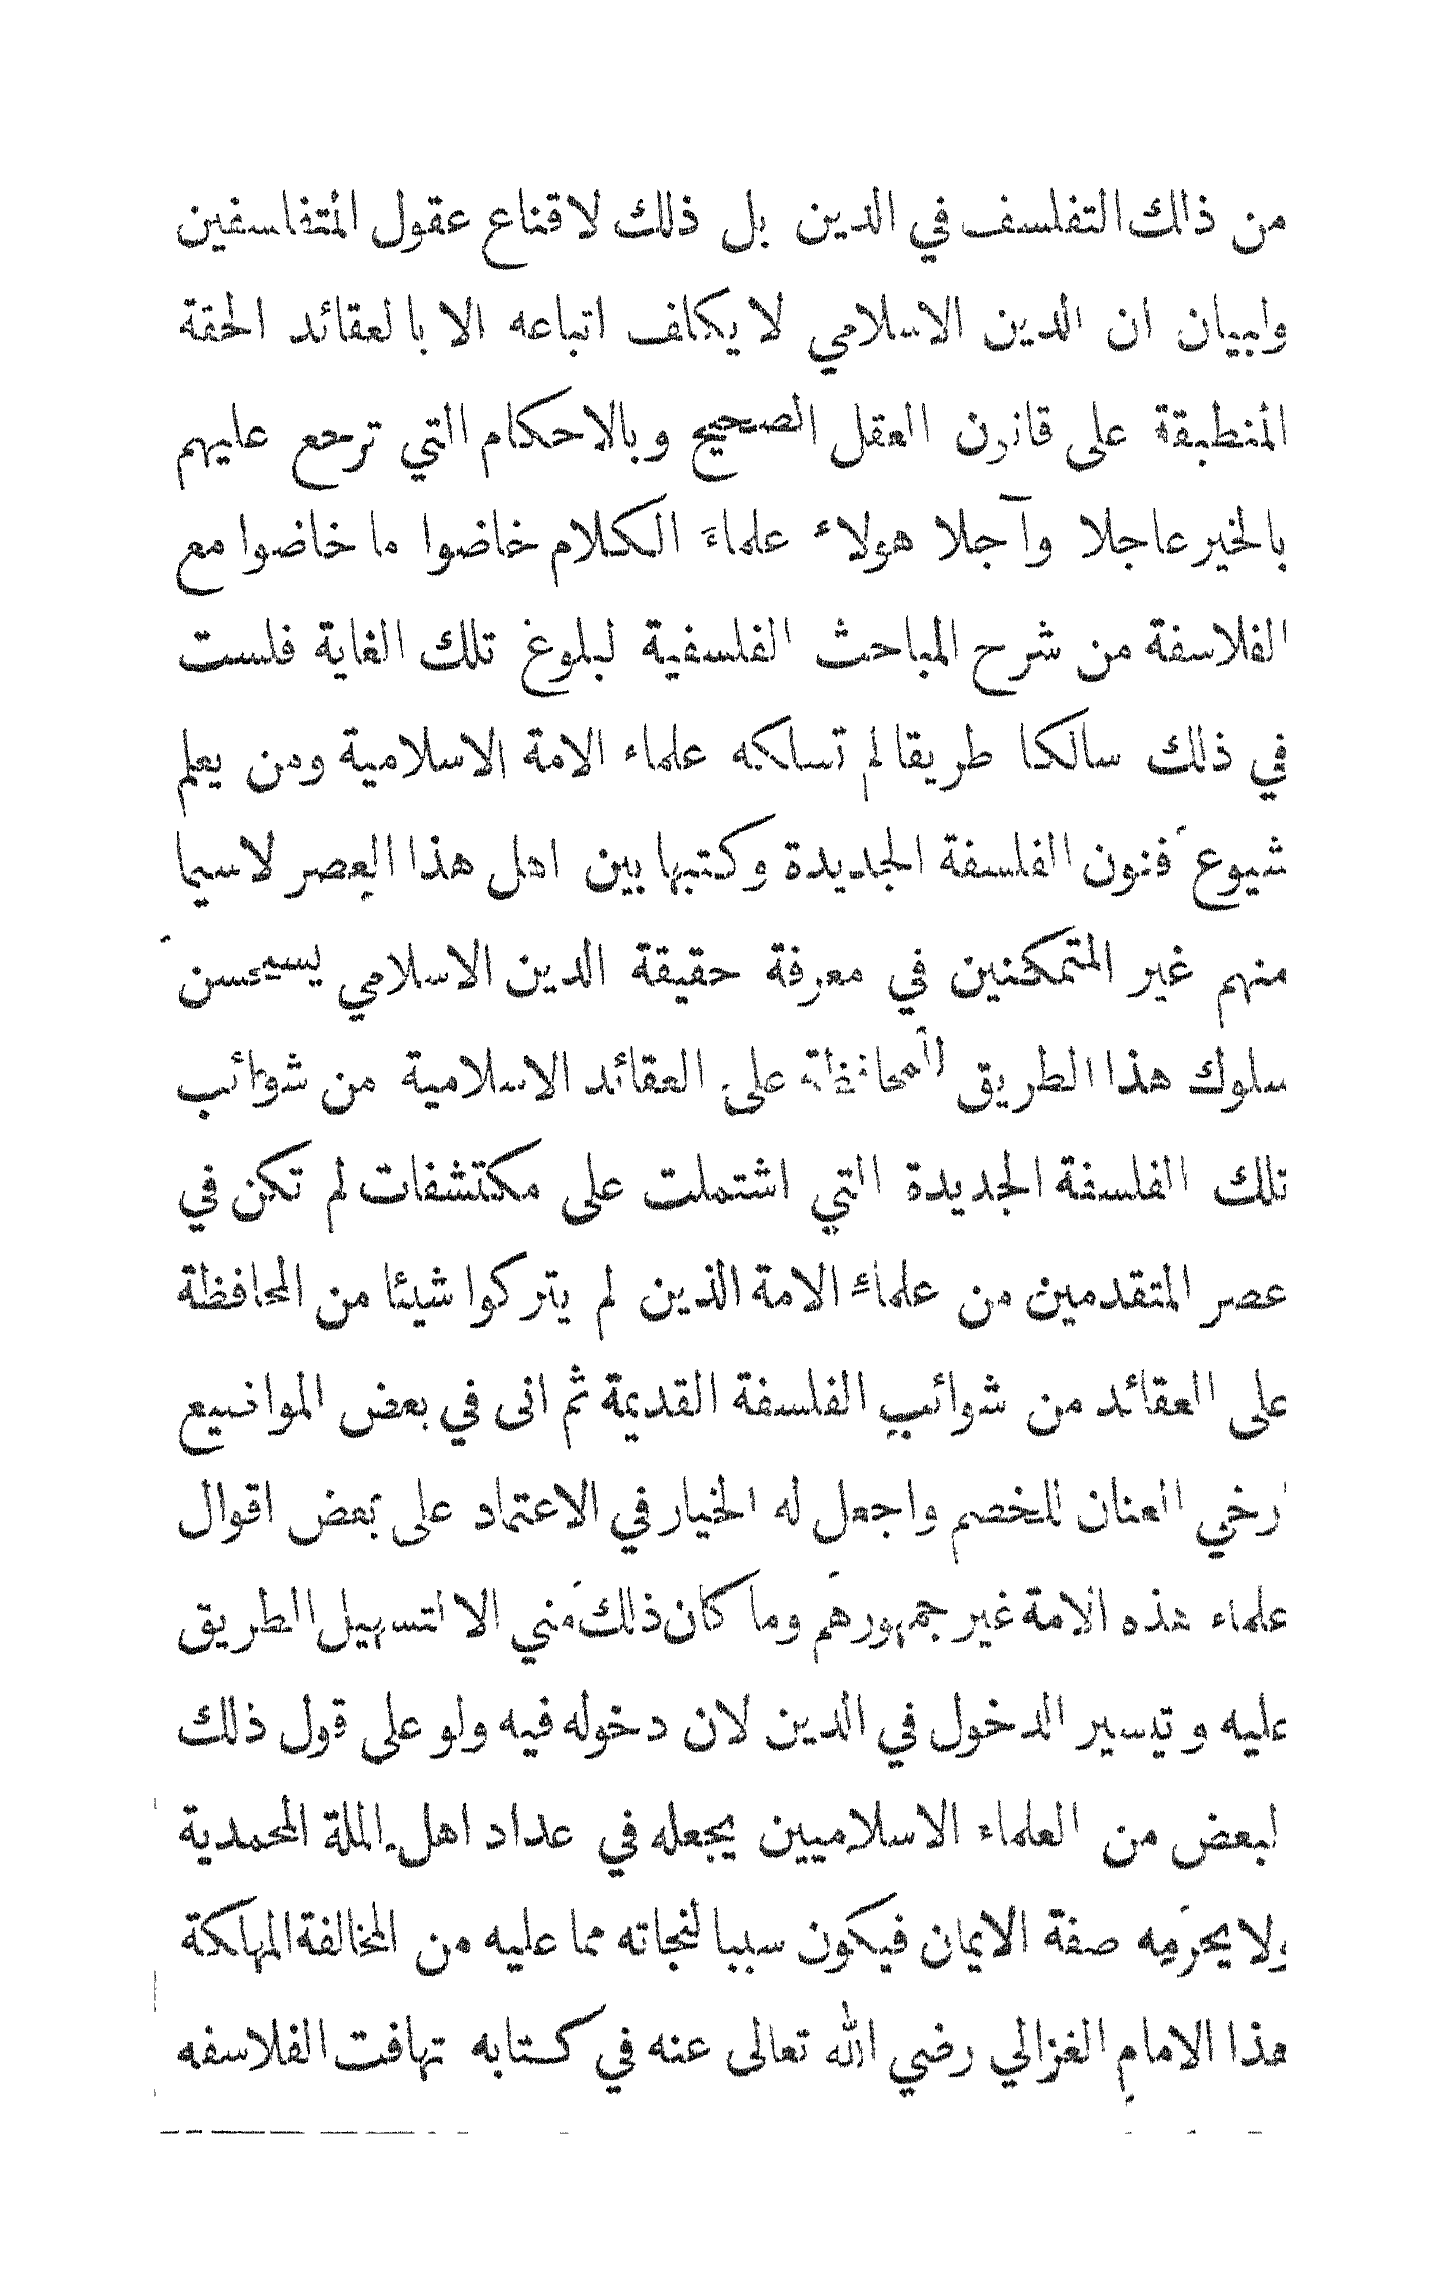 من ذلك التفلسف في الدين بل ذلك لاقناع عقول المتفلسفين
ولبيان ان الدين الاسلامي لا يكلف اتباعه الا بالعقائد الحقة
المنطبقة على قانون العقل الصحيح وبالاحكام التي ترجع عليهم
بالخير عاجلا وآجلا هولاء علماء الكلام خاضوا ما خاضوا مع
الفلاسفة من شرح المباحث الفلسفية لبلوغ تلك الغاية فلست
في ذلك سالكا طريقا لم تسلكه علماء الامة الاسلامية ومن يعلم
شيوع فنون الفلسفة الجديدة وكتبها بين اهل هذا العصر لاسيما
منهم غير المتمكنين في معرفة حقيقة الدين الاسلامي يستحسن
سلوك هذا الطريق للمحافظة على العقائد الاسلامية من شوائب
تلك الفلسفة الجديدة التي اشتملت على مكتشفات لم تكن في
عصر المتقدمين من علماء الامة الذين لم يتركوا شيئا من المحافظة
على العقائد من شوائب الفلسفة القديمة ثم انى في بعض المواضيع
ارخي العنان للخصم واجعل له الخيار في الاعتماد على بعض اقوال
علماء هذه الامة غير جمهورهم وما كان ذلك مني الا لتسهيل الطريق
عليه وتيسير الدخول في الدين لان دخوله فيه ولو على قول ذلك
البعض من العلماء الاسلاميين يجعله في عداد اهل الملة المحمدية
ولا يحرمه صفة الايمان فيكون سببا لنجاته مما عليه من المخالفة المهلكة
هذا الامام الغزالي رضي الله تعالى عنه في كتابه تهافت الفلاسفه